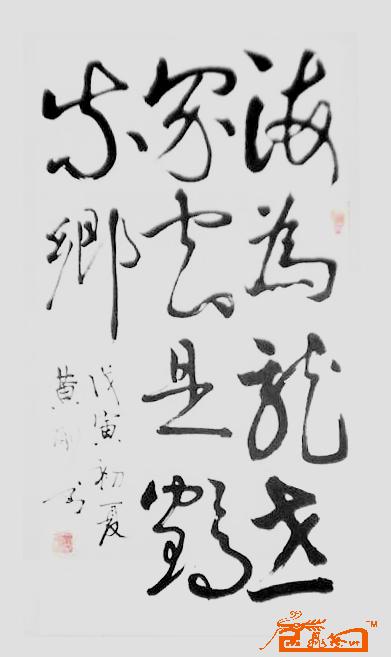 海為龍世
界雲是鶴
家鄉
戊寅初夏
黄刚书